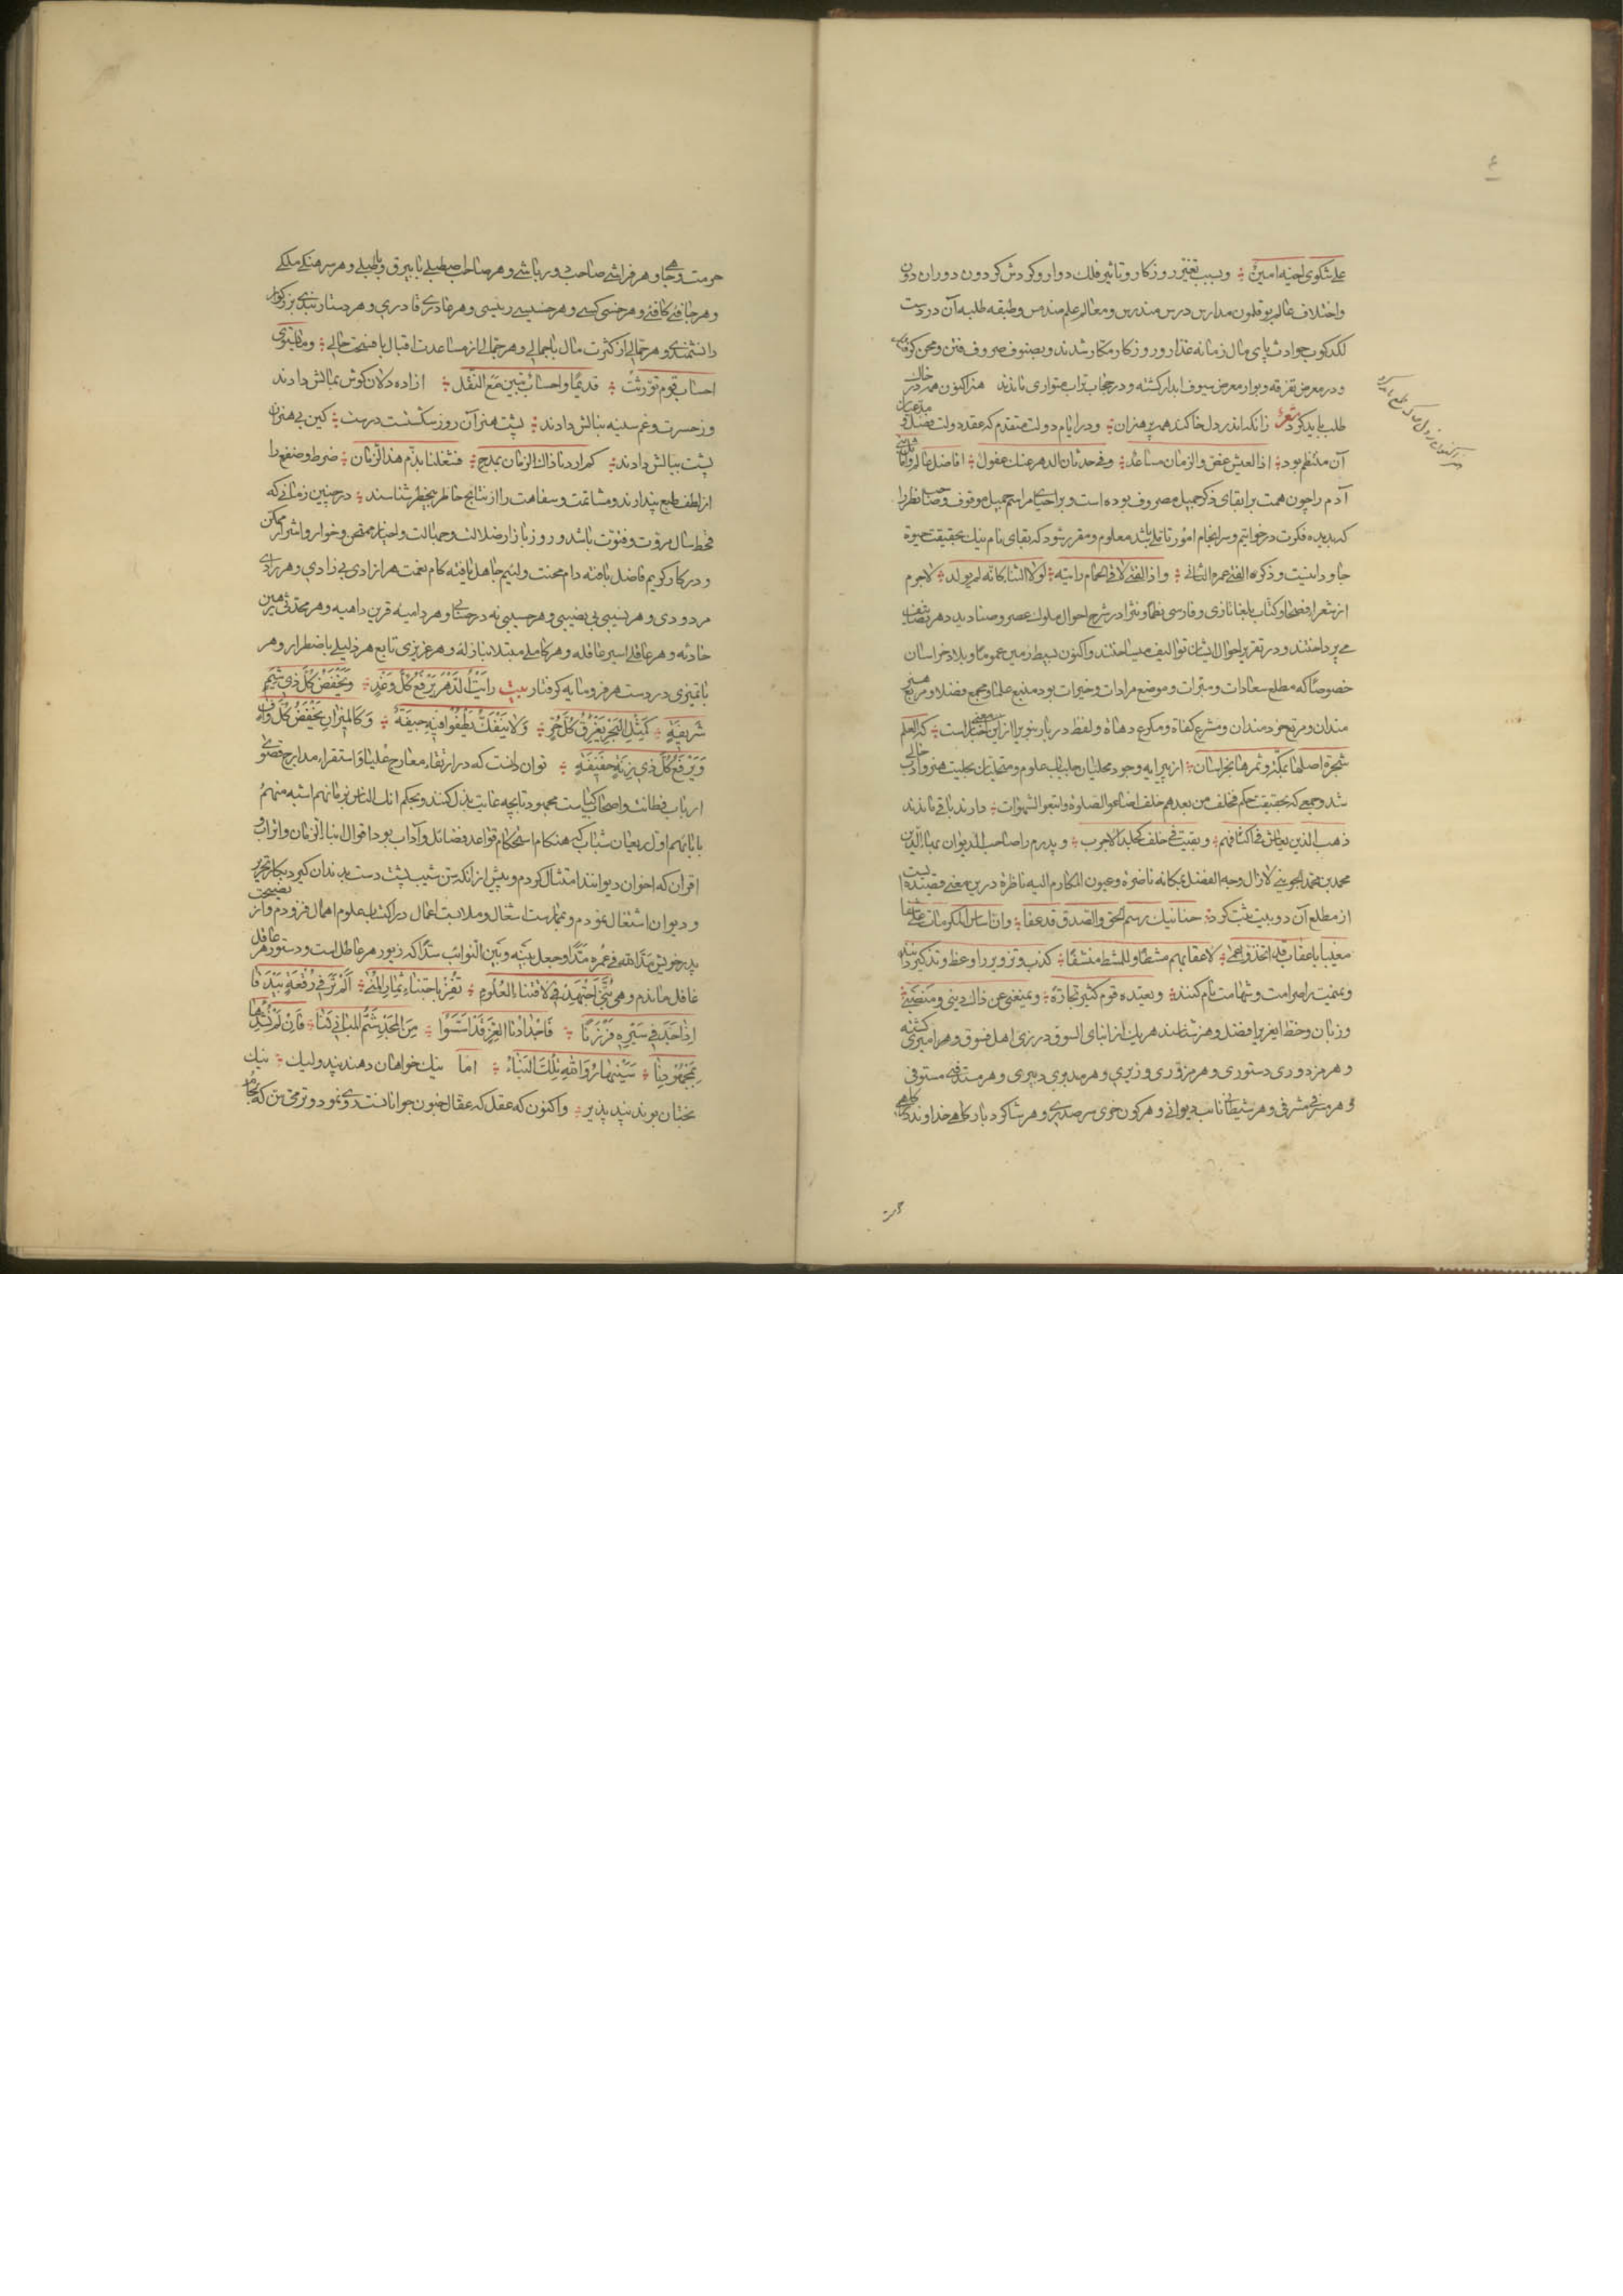 علی شکوی اخیه امین و بسبب تغیر روزکار و تاثیر فلک دوار و کردش کردون دوران دون
و اختلاف عالم بوقلمون مدارس درس مندرس و معالم علم منطمس و طبقه طلبه آن در دست
لکدکوب حوادث پای مال زمانه غدار و روزکار مکار شدند و بصنوف صروف فتن و محن کرفتار
و در معرض تفرقه و بوار معرض سیوف ابدار کشته و در حجاب تراب متواری ماندند هنر اکنون همه در خاک
طلب باید کرد شعر زانک اندر دل خاکند همه پرهنران و در ایام دولت متقدم که عقد دولت فضل و
آن منتظم بود اذ العیش غض و الزمان مساعد وفی حدثان الدهر عنک غفول افاضل عالم و
آدم را چون همت بر ابقای ذکر جمیل مصروف بوده است و بر احیای مراسم جمیل موقوف و صاحب نظر را
که بدیده فکرت در خواتیم و سرانجام امور تاملی باشد معلوم و مقرر شود که بقای نام نیک بحقیقت حیوة
جاودانیست وذکره الفتی عمره الثانی و اذا الفتی لاقی الحمام رایته لولا الثنا کانه لم یولد لاجرم
از شعرا فصحا و کتاب بلغا تازی و فارسی نظما و نثرا در شرح احوال ملوک عصر و صنادید دهر تصانیف
می پرداختند و در تقریر احوال ایشان توالیف میساختند و اکنون بسیط زمین عموما و بلاد خراسان
خصوصا که مطلع سعادات و مبرات و موضع مرادات و خیرات بود منبع علما و مجمع فضلا و مربع هنر
مندان و مرتع خردمندان و مشرع کفاة و مکرع دهاة و لفظ دربار نبوی را ازین معنی اخبارست که العلم
شجرة اصلها بمکة و ثمرها بخراسان از پیرایه وجود متجلیان جلباب علوم و متحلیان بحلیت هنر و اداب خالی
شد و جمعی که بحقیقت حکم فخلف من بعدهم خلف اضاعوا الصلوة و اتبعوا الشهوات دارند باقی ماندند
ذهب الذین یعاش فی اکنافهم و بقیت فی خلف کجلد الاجرب و پدرم را صاحب الدیوان بهاء الدین
محمد بن محمد الجوینی لازال وجه الفضل بمکانه ناضرة و عیون المکارم الیه ناظرة درین معنی قصیده ایست
از مطلع آن دو بیت ثبت کرد حنانیک رسم الحق والصدق قد عفا و ان اساس المکرمات علی شفا
مغیبا باعقاب قد اتخذوا عمی لاعقابهم مشطا و للمشط منشفا کذب و تزویر را وعظ و تذکیر دانند
و نمیمت را صرامت و شهامت نام کنند و یعتده قوم کثیر تجارة و یمنعنی عن ذاک دینی و منصبی
و زبان و خط ایغری را فضل و هنر شناسند هر یک از ابنای السوق در زی اهل فسوق و هر امیری کشته
و هر مزدوری دستوری و هر مزوری وزیری و هر مدبری دبیری و هر مستدفی مستوفی
و هر مسرفی مشرفی و هر شیطانی نایب دیوانی و هر کون خری سر صدری و هر شاکرد پایکاهی خداوند
حرمت و جاهی و هر فراشی صاحب دورباشی و هر صاحب اصطبلی با بیرق و طبلی و هر سرهنکی ملکی
و هر جافیی کافیی و هر خسی کسی و هر خسیسی رئیسی و هر غادری قادری و هر دستاربندی بزرکوار
دانشمندی و هر جمالی از کثرت مال با جمالی و هر حمالی از مساعدت اقبال با فسحت حالی و ما یستوی
احساب قوم تورثت قدیما و احساب نبتن مع البقل ازاده دلان کوش بمالش دادند
وز حسرت و غم سینه بنالش دادند پشت هنر آن روز شکست درست کین بی هنران
پشت ببالش دادند کم اردنا ذاک الزمان بمدح فشغلنا بذم هذا الزمان ضرط و صفع را
از لطف طبع پندارند و مشاتمت و سفاهت را از نتایج خاطر بیخطر شناسند در چنین زمانی که
قحط سال مروت و فتوت باشد و روز بازار ضلالت و جهالت و اخیار ممتحن و خوار و اشرار ممکن
و در کار کریم فاضل تافته دام محنت و لئیم جاهل یافته کام نعمت هر ازادی بی زادی و هر رادی
مردودی و هر نسیبی بی نصیبی و هر حسیبی نه در حسابی و هر داهیه قرین داهیه و هر محدثی رهین
حادثه و هر عاقلی اسیر عاقله و هر کاملی مبتلا بنازله و هر عزیزی تابع هر ذلیلی باضطرار و هر
با تمیزی در دست هر فرومایه کرفتار بیت رایت الدهر یرفع کل وغد و یخفض کل ذی شیم
شریفة کمثل البحر یغرق کل حی و لا ینفک تطفو فیه جیفة و کالمیزان یخفض کل واف
و یرفع کل ذی زنة خفیفة توان دانست که در ارتقاء معارج علیا و استقراء مدارج قصوی
ارباب فطانت و اصحاب کیاست مجهود تا بچه غایت بذل کنند و بحکم انک الناس بزمانهم اشبه منهم
بابائهم اول ریعان شباب که هنکام استحکام قواعد فضائل و آداب بود اقوال ابناء الزمان و اتراب و
اقران که اخوان دیوانند امتثال کردم و پیش از انکه سن شیب پشت دست بدندان کیرد بکار تحریر
و دیوان اشتغال نمودم و بممارست اشغال و ملابست اعمال در اکتساب علوم اهمال فزودم و از نصیحت
پدر خویش مد الله فی عمره مدا و جعل بینه و بین النوائب سدا که زیور هر عاطل است و دستور هر عاقل
غافل ماندم و هی بنی اجتهد فی لاقتناء العلوم تفز باجتناء ثمار المنی الم تر فی رقعة بیدقا
اذا جد فی سیره فرزنا فاجدادنا الغر قد اسسوا من المجد شم المبانی لنا فان لم نشدها
بمجهودنا سینهار والله تلک البناء اما نیک خواهان دهند پند ولیک نیک
بختان بوند پند پذیر و اکنون که عقل که عقال جنون جوانانست روی نمود و ترقی سن که